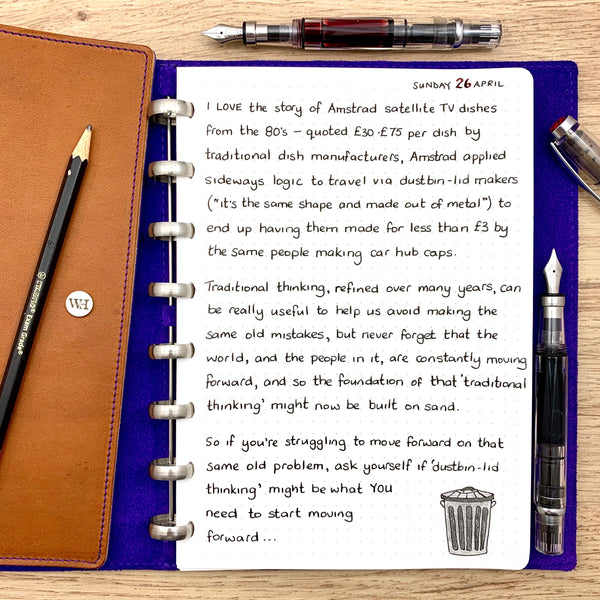 SUNDAY 26 APRIL
I LOVE the story of Amstrad satellite TV dishes
from the 80's – quoted £30-£75 per dish by
traditional dish manufacturers, Amstrad applied
sideways logic to travel via dustbin-lid makers
("it's the same shape and made out of metal") to
end up having them made for less than £3 by
the same people making car hub caps.
Traditional thinking, refined over many years, can
be really useful to help us avoid making the
same old mistakes, but never forget that the
world, and the people in it, are constantly moving
forward, and so the foundation of that 'traditional
thinking' might now be built on sand.
So if you're struggling to move forward on that
same old problem, ask yourself if 'dustbin-lid
thinking' might be what YOU
need to start moving
forward...
WH
Exam Grade